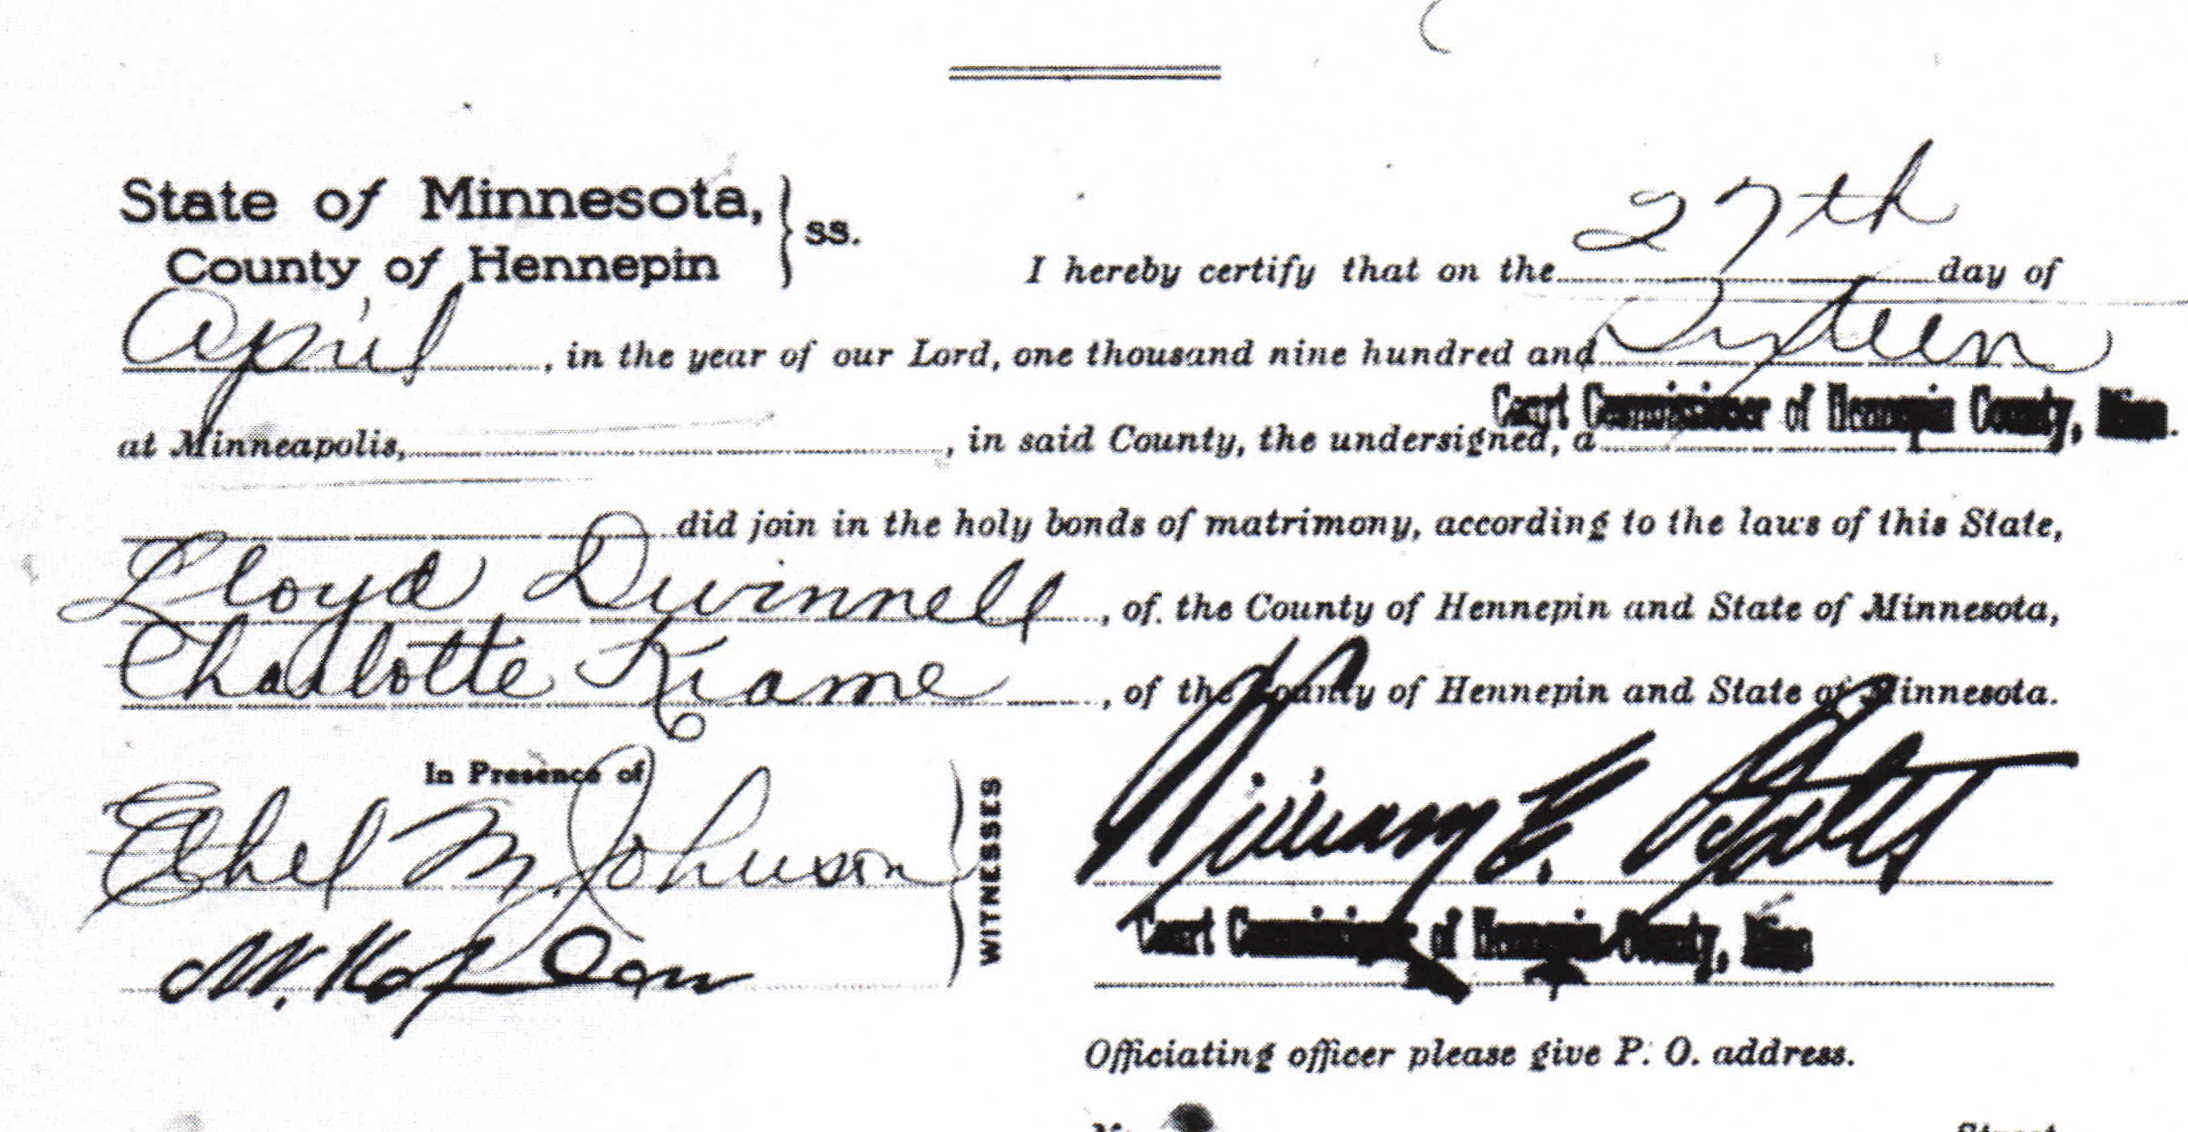 State of Minnesota, } ss.
County of Hennepin
I hereby certify that on the 27th day of
April, in the year of our Lord, one thousand nine hundred and Sixteen
Court Commissioner of Hennepin County, Minn.
at Minneapolis, , in said County, the undersigned, a
did join in the holy bonds of matrimony, according to the laws of this State,
Lloyd Dwinnell, of the County of Hennepin and State of Minnesota,
Charlotte Kiame, of the County of Hennepin and State of Minnesota.
In Presence of
Ethel M. Johnson
W. Kaplan
WITNESSES
William E.
Court Commissioner of Hennepin County, Minn
Officiating officer please give P. O. address.
No. Street